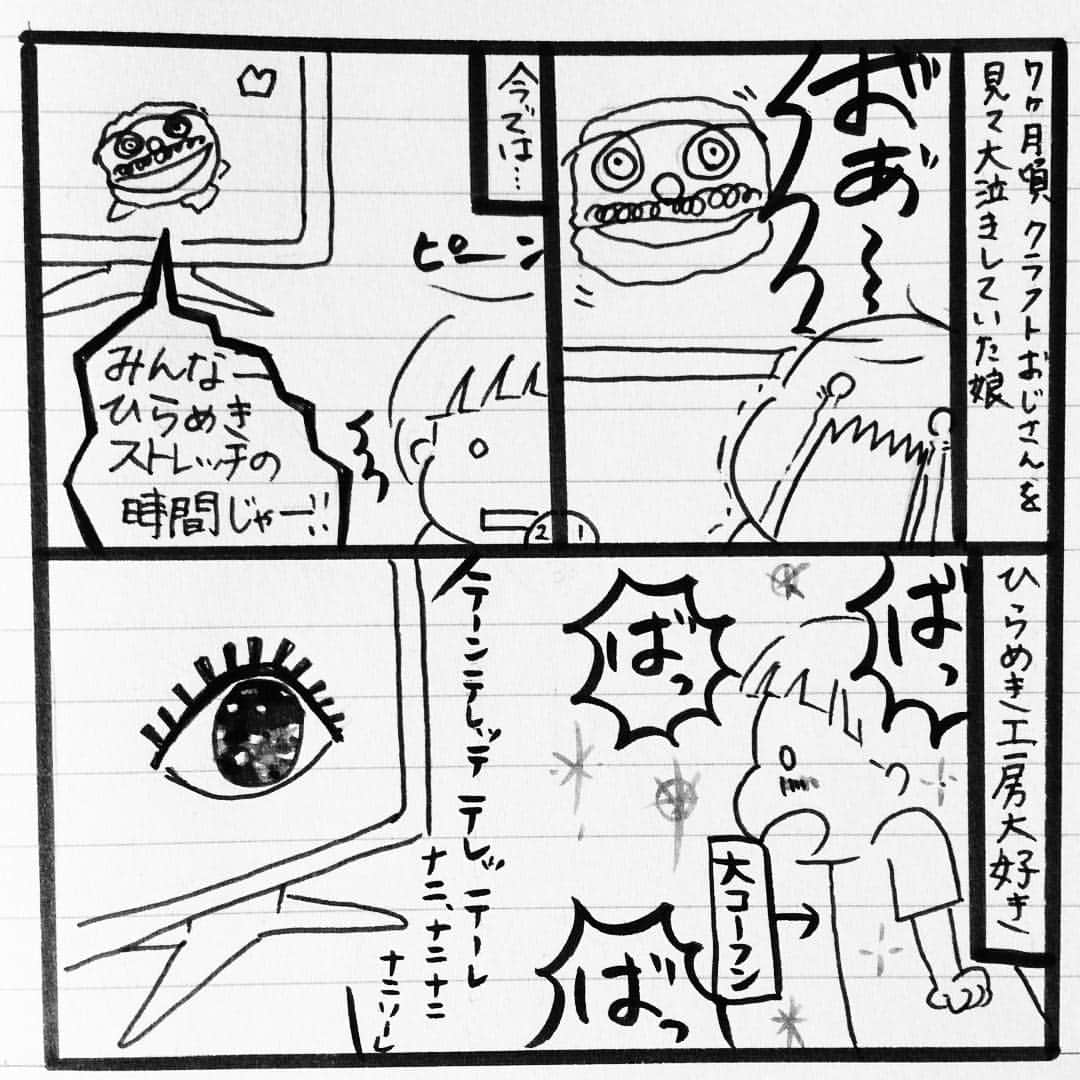 7ヶ月頃 クラフトおじさんを
見て大泣きしていた娘
ばあ〜
今では…
ピーン
みんなー
ひらめき
ストレッチの
時間じゃー!!
1
2
ひらめき工房大好き
ばっ
ばっ
ばっ
大コーフン
テーンテレッテ テレッテーレ
ナニ、ナニナニ
ナニソーレ